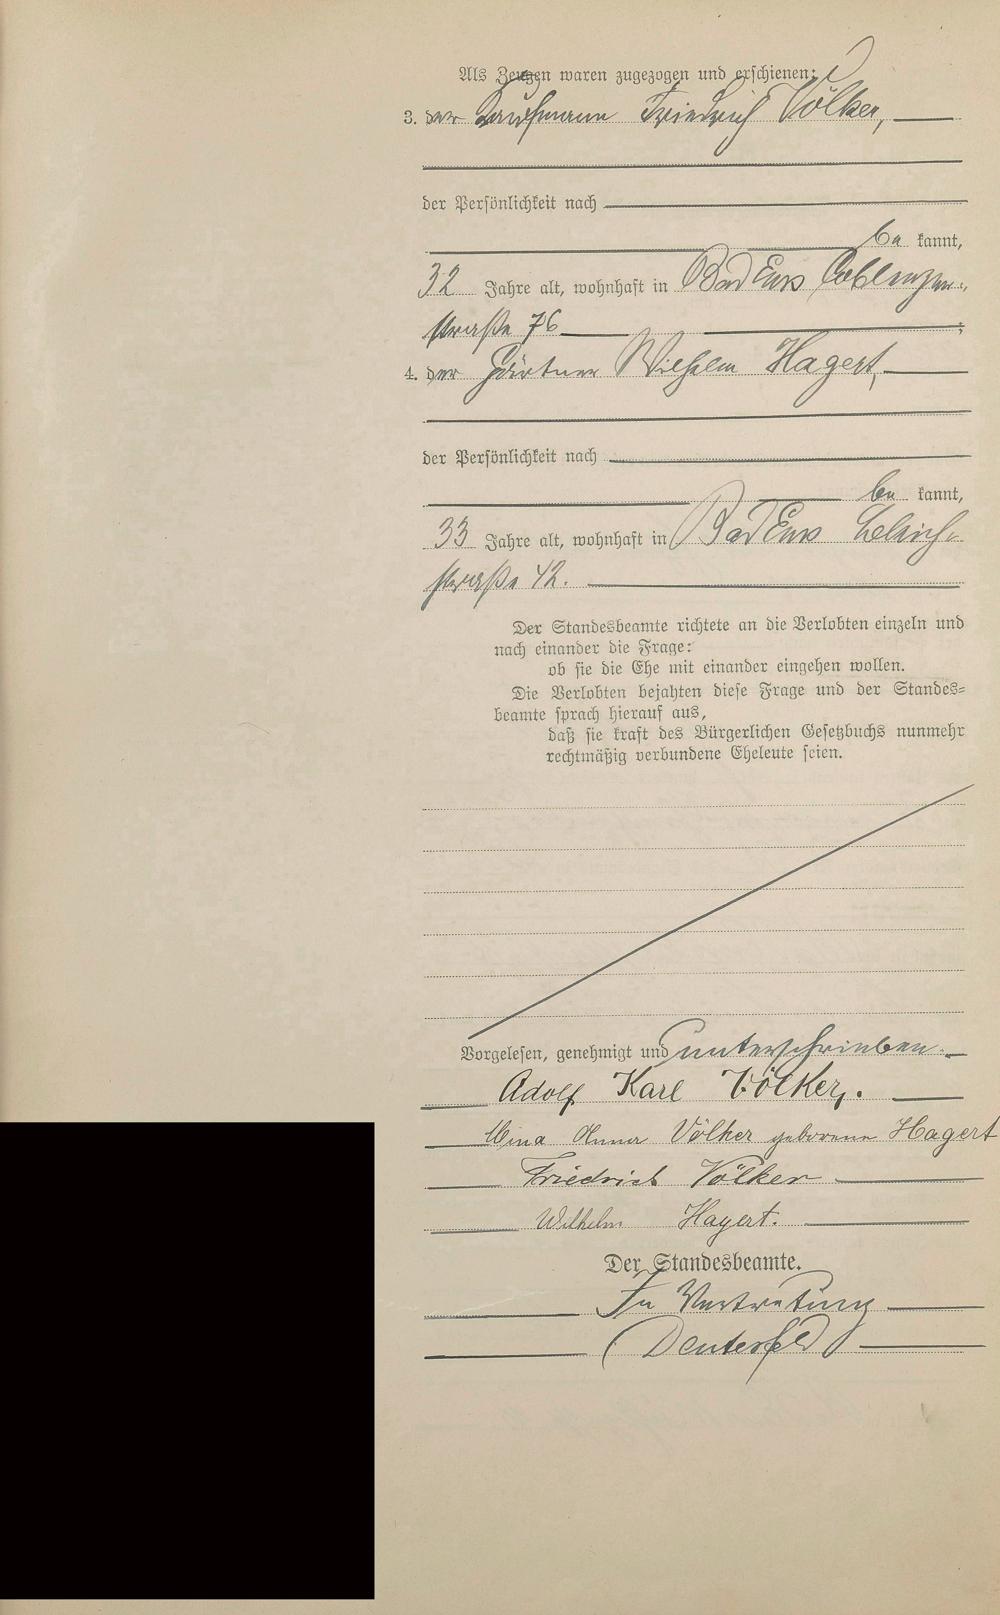 Als Zeugen waren zugezogen und erschienen:
3. der Kaufmann Friedrich Völker,
der Persönlichkeit nach
be kannt,
32 Jahre alt, wohnhaft in Bad Ems Coblenzer-
straße 76
4. der Gärtner Wilhelm Hagert,
der Persönlichkeit nach
be kannt,
33 Jahre alt, wohnhaft in Bad Ems
straße 42.
Der Standesbeamte richtete an die Verlobten einzeln und
nach einander die Frage:
ob sie die Ehe mit einander eingehen wollen.
Die Verlobten bejahten diese Frage und der Standes-
beamte sprach hierauf aus,
daß sie kraft des Bürgerlichen Gesetzbuchs nunmehr
rechtmäßig verbundene Eheleute seien.
Vorgelesen, genehmigt und unterschrieben.
Adolf Karl Völker.
Anna Völker geborene Hagert
Friedrich Völker
Wilhelm Hagert.
Der Standesbeamte.
In Vertretung